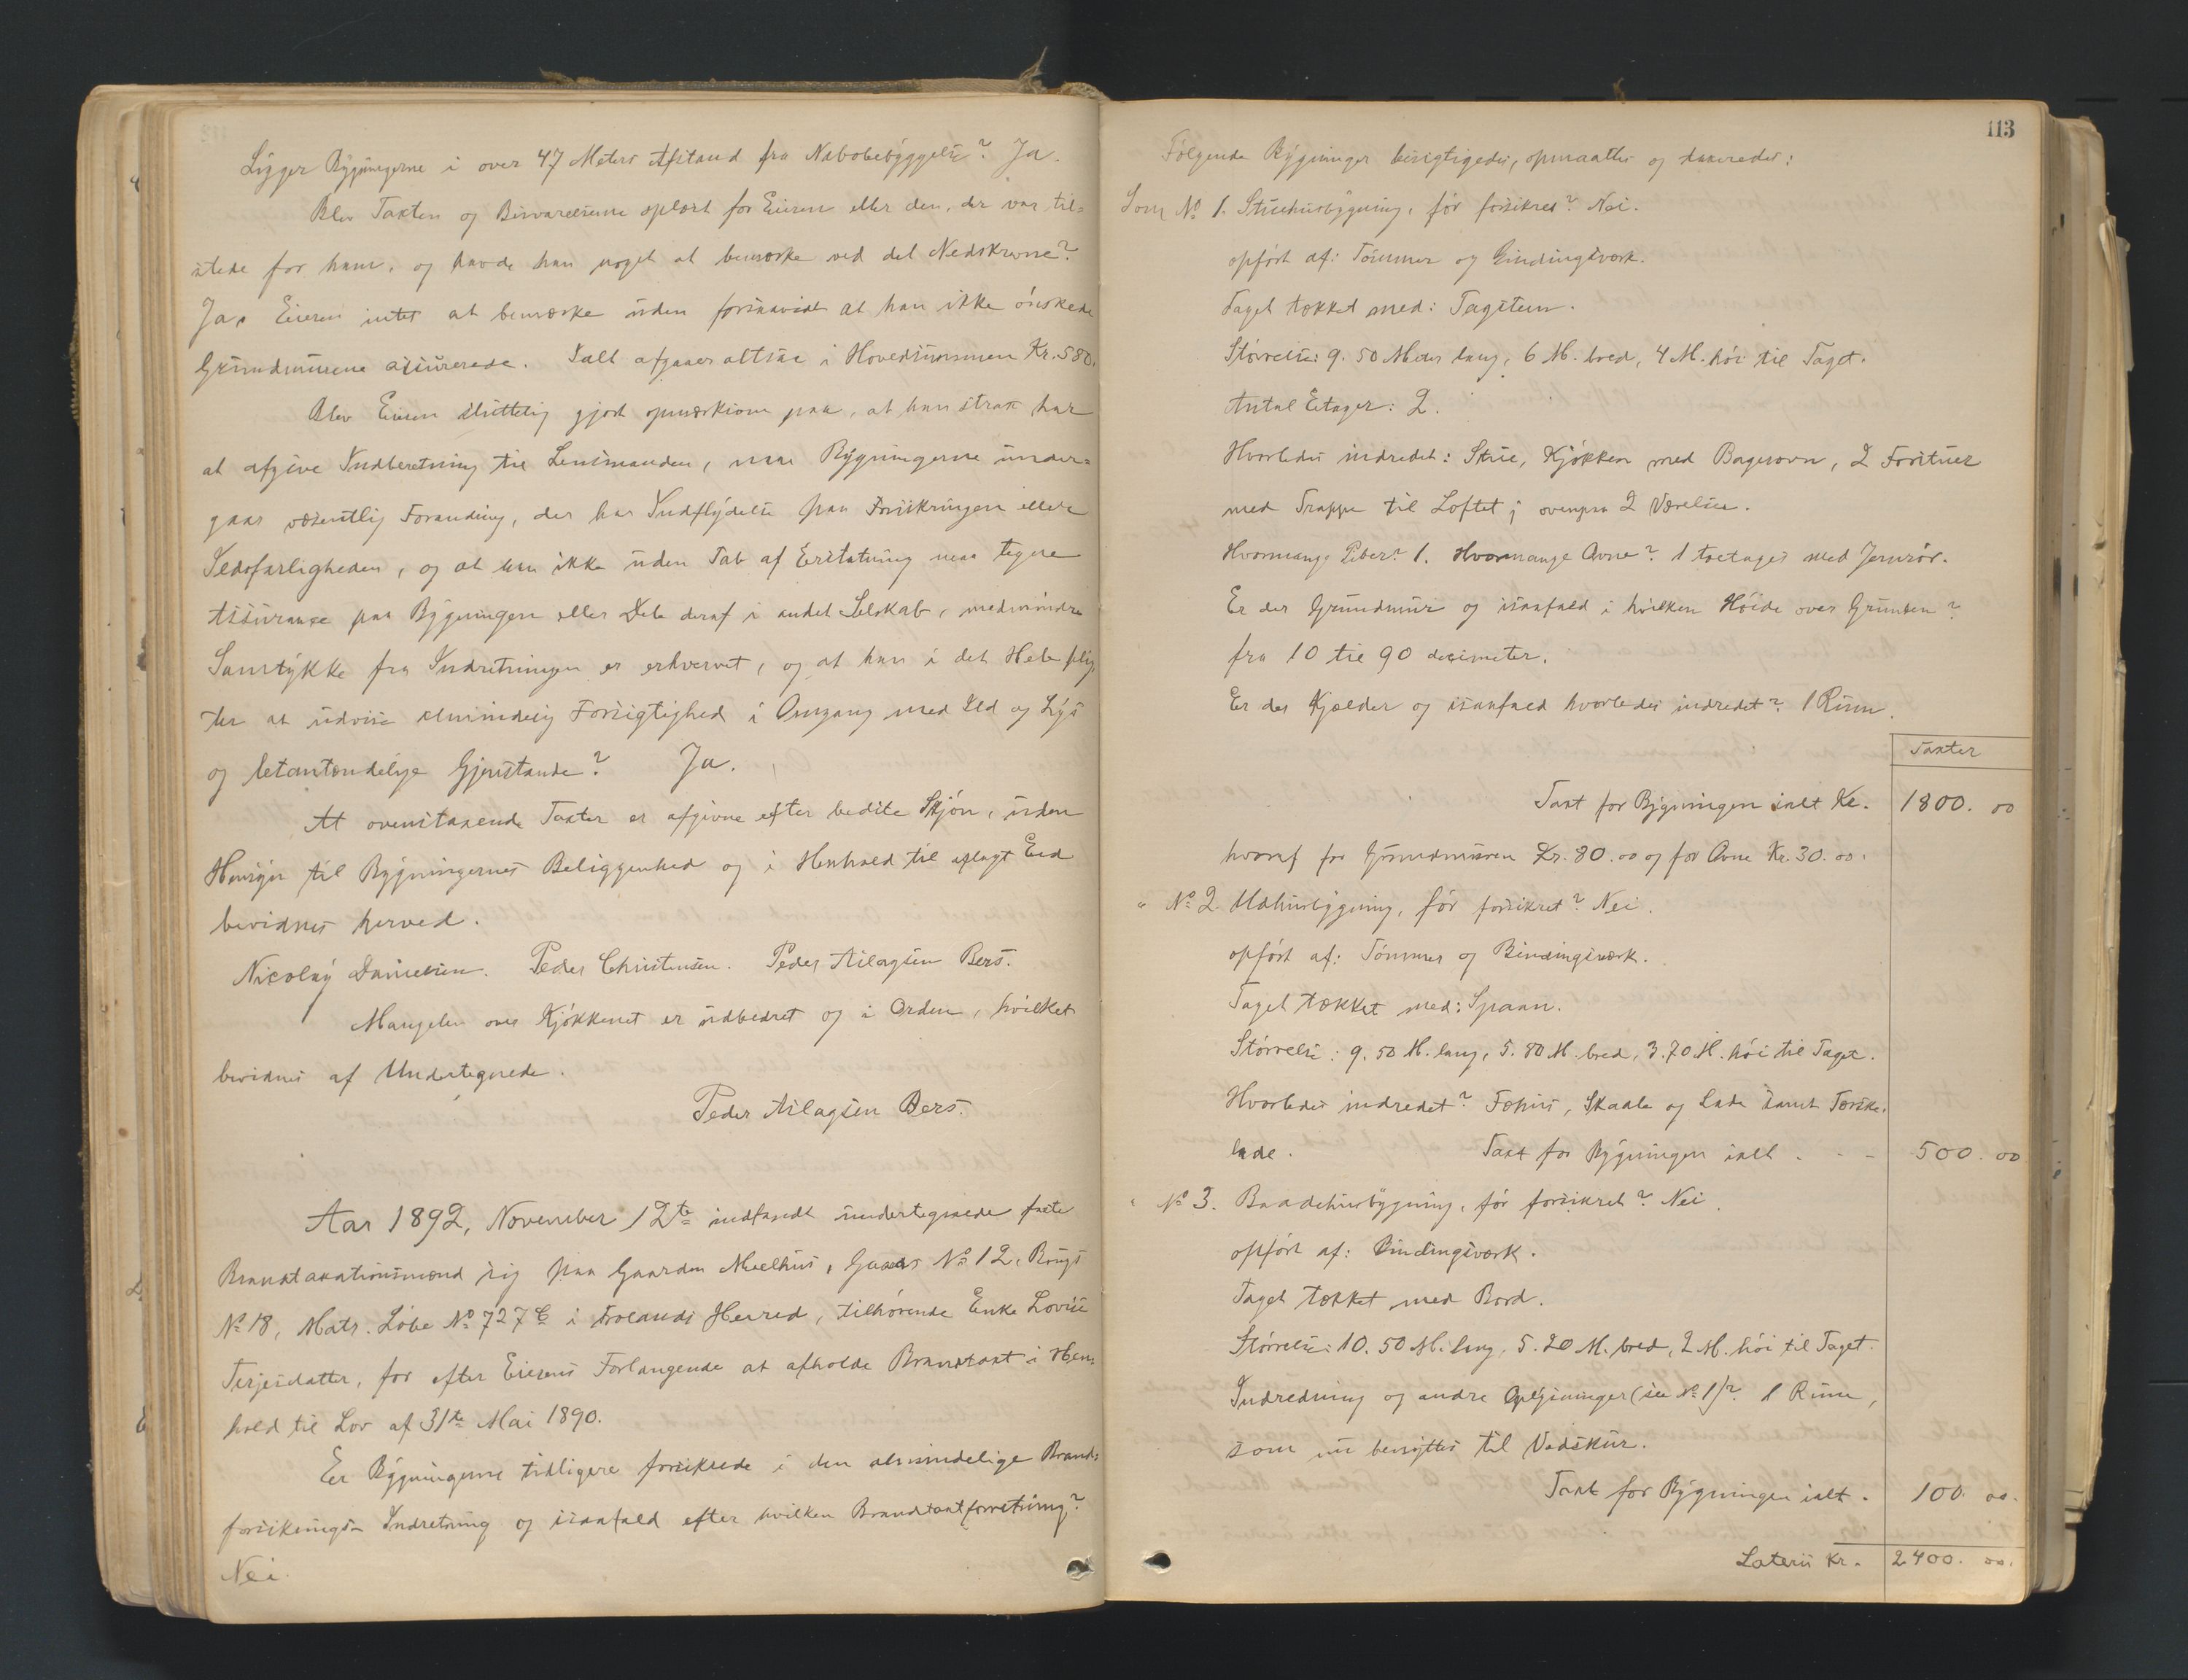 Ligger Bygningerne i over 47 Meters Afstand fra Nabobebyggelse? Ja.
Blev Taxten og Besvarelserne oplæst for Eieren eller den, der var til-
stede for ham, og havde han noget at bemærke ved det Nedskrevne?
Ja, Eieren intet at bemærke uden forsaavidt at han ikke ønskede
Grundmurene assurerede. Ialt afgaaer altsaa i Hovedsummen Kr. 580.
Blev Eieren sluttelig gjort opmærksom paa, at han strax har
at afgive Indberetning til Lensmanden, naar Bygningerne under-
gaar væsentlig Forandring, der har Indflydelse paa Forsikringen eller
Ildsfarligheden, og at han ikke uden Tab af Erstatning maa tegne
Assurance paa Bygningen eller Dele deraf i andet Selskab, medmindre
Samtykke fra Indretningen er erhvervet, og at han i det Hele plig-
ter at udvise almindelig Forsigtighed i Omgang med Ild og Lys
og letantændelige Gjenstande? Ja.
At ovenstaaende Taxter er afgivne efter bedste Skjøn, uden
Hensyn til Bygningernes Beliggenhed og i Henhold til aflagt Eed
bevidnes herved.
Nicolay Danielsen. Peder Christensen. Peder Aslagsen Bers.
Mangelen over Kjøkkenet er udbedret og i Orden, hvilket
bevidnes af Undertegnede.
Peder Aslagsen Bers.
Aar 1892, November 12te indfandt undertegnede faste
Brandtaxationsmænd sig paa Gaarden Mælhus, Gaards No 12, Brugs
No 18, Matr. Løbe No 727 c i Frolands Herred, tilhørende Enke Lovise
Terjesdatter, for efter Eierens Forlangende at afholde Brandtaxt i Hen-
hold til Lov af 31te Mai 1890.
Er Bygningerne tidligere forsikrede i den almindelige Brand-
forsikrings-Indretning og isaafald efter hvilken Brandtaxtforretning?
Nei.
113
Følgende Bygninger besigtigedes, opmaaltes og taxeredes:
Som No 1. Stuehusbygning, før forsikret? Nei.
opført af: Tømmer og Bindingsværk.
Taget tækket med: Tagsten.
Størrelse: 9.50 Meter lang, 6 M. bred, 4 M. høi til Taget.
Antal Etager: 2.
Hvorledes indredet: Stue, Kjøkken med Bagerovn, 2 Forstuer
med Trappe til Loftet; ovenpaa 2 Værelser.
Hvormange Piber? 1. Hvormange Ovne? 1 toetages med Jernrør.
Er der Grundmur og isaafald i hvilken Høide over Grunden?
fra 10 til 90 decimeter.
Er der Kjælder og isaafald hvorledes indredet? 1 Rum.
Taxter
Taxt for Bygningen ialt Kr. 1800. 00
hvoraf for Grundmuren Kr. 80.00 og for Ovne Kr. 30.00.
" No 2 Udhusbygning, før forsikret? Nei.
opført af: Tømmer og Bindingsværk.
Taget tækket med: Spaan.
Størrelse: 9.50 M. lang, 5.80 M. bred, 3.70 M. høi til Taget.
Hvorledes indredet? Fæhus, Skaale og Lade samt Tærske-
lade. Taxt for Bygningen ialt . - - 500. 00
" No 3. Baadehusbygning, før forsikret? Nei.
opført af: Bindingsværk.
Taget tækket med Bord.
Størrelse: 10.50 M. lang, 5.20 M. bred, 2 M. høi til Taget.
Indredning og andre Oplysninger (se No 1)? 1 Rum,
som nu benyttes til Vedskur.
Taxt for Bygningen ialt. 100. 00.
Lateris Kr. 2400. 00.